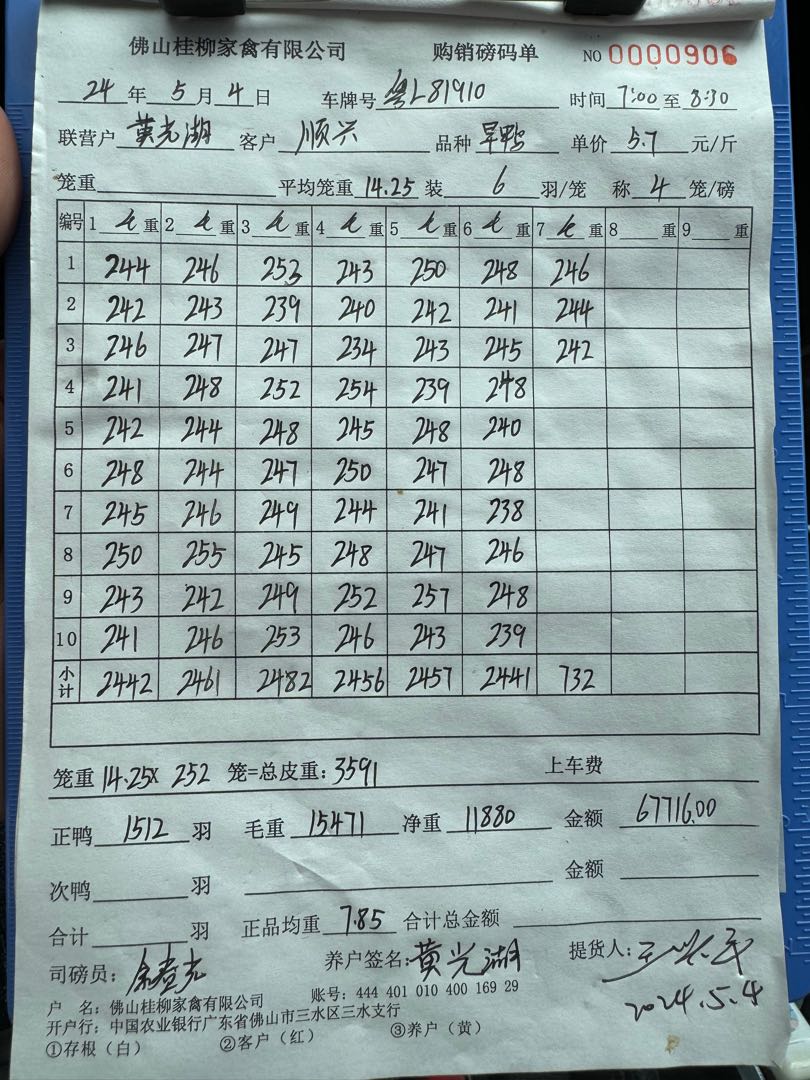 佛山桂柳家禽有限公司 购销磅码单 NO 0000906
24 年 5 月 4 日 车牌号 粤L81910 时间 7:00 至 8:30
联营户 黄光湖 客户 顺兴 品种 旱鸭 单价 5.7 元/斤
笼重 平均笼重 14.25 装 6 羽/笼 称 4 笼/磅
编号 1 毛 重 2 毛 重 3 毛 重 4 毛 重 5 毛 重 6 毛 重 7 毛 重 8 重 9 重
1 244 246 253 243 250 248 246
2 242 243 239 240 242 241 244
3 246 247 247 234 243 245 242
4 241 248 252 254 239 248
5 242 244 248 245 248 240
6 248 244 247 250 247 248
7 245 246 249 244 241 238
8 250 255 245 248 247 246
9 243 242 249 252 257 248
10 241 246 253 246 243 239
小计 2442 2461 2482 2456 2457 2441 732
笼重 14.25 X 252 笼=总皮重: 3591 上车费
正鸭 1512 羽 毛重 15471 净重 11880 金额 67716.00
次鸭 羽 金额
合计 羽 正品均重 7.85 合计总金额
司磅员: 养户签名: 黄光湖 提货人:
2024.5.4
户 名: 佛山桂柳家禽有限公司 账号: 444 401 010 400 169 29
开户行: 中国农业银行广东省佛山市三水区三水支行
①存根(白) ②客户(红) ③养户(黄)